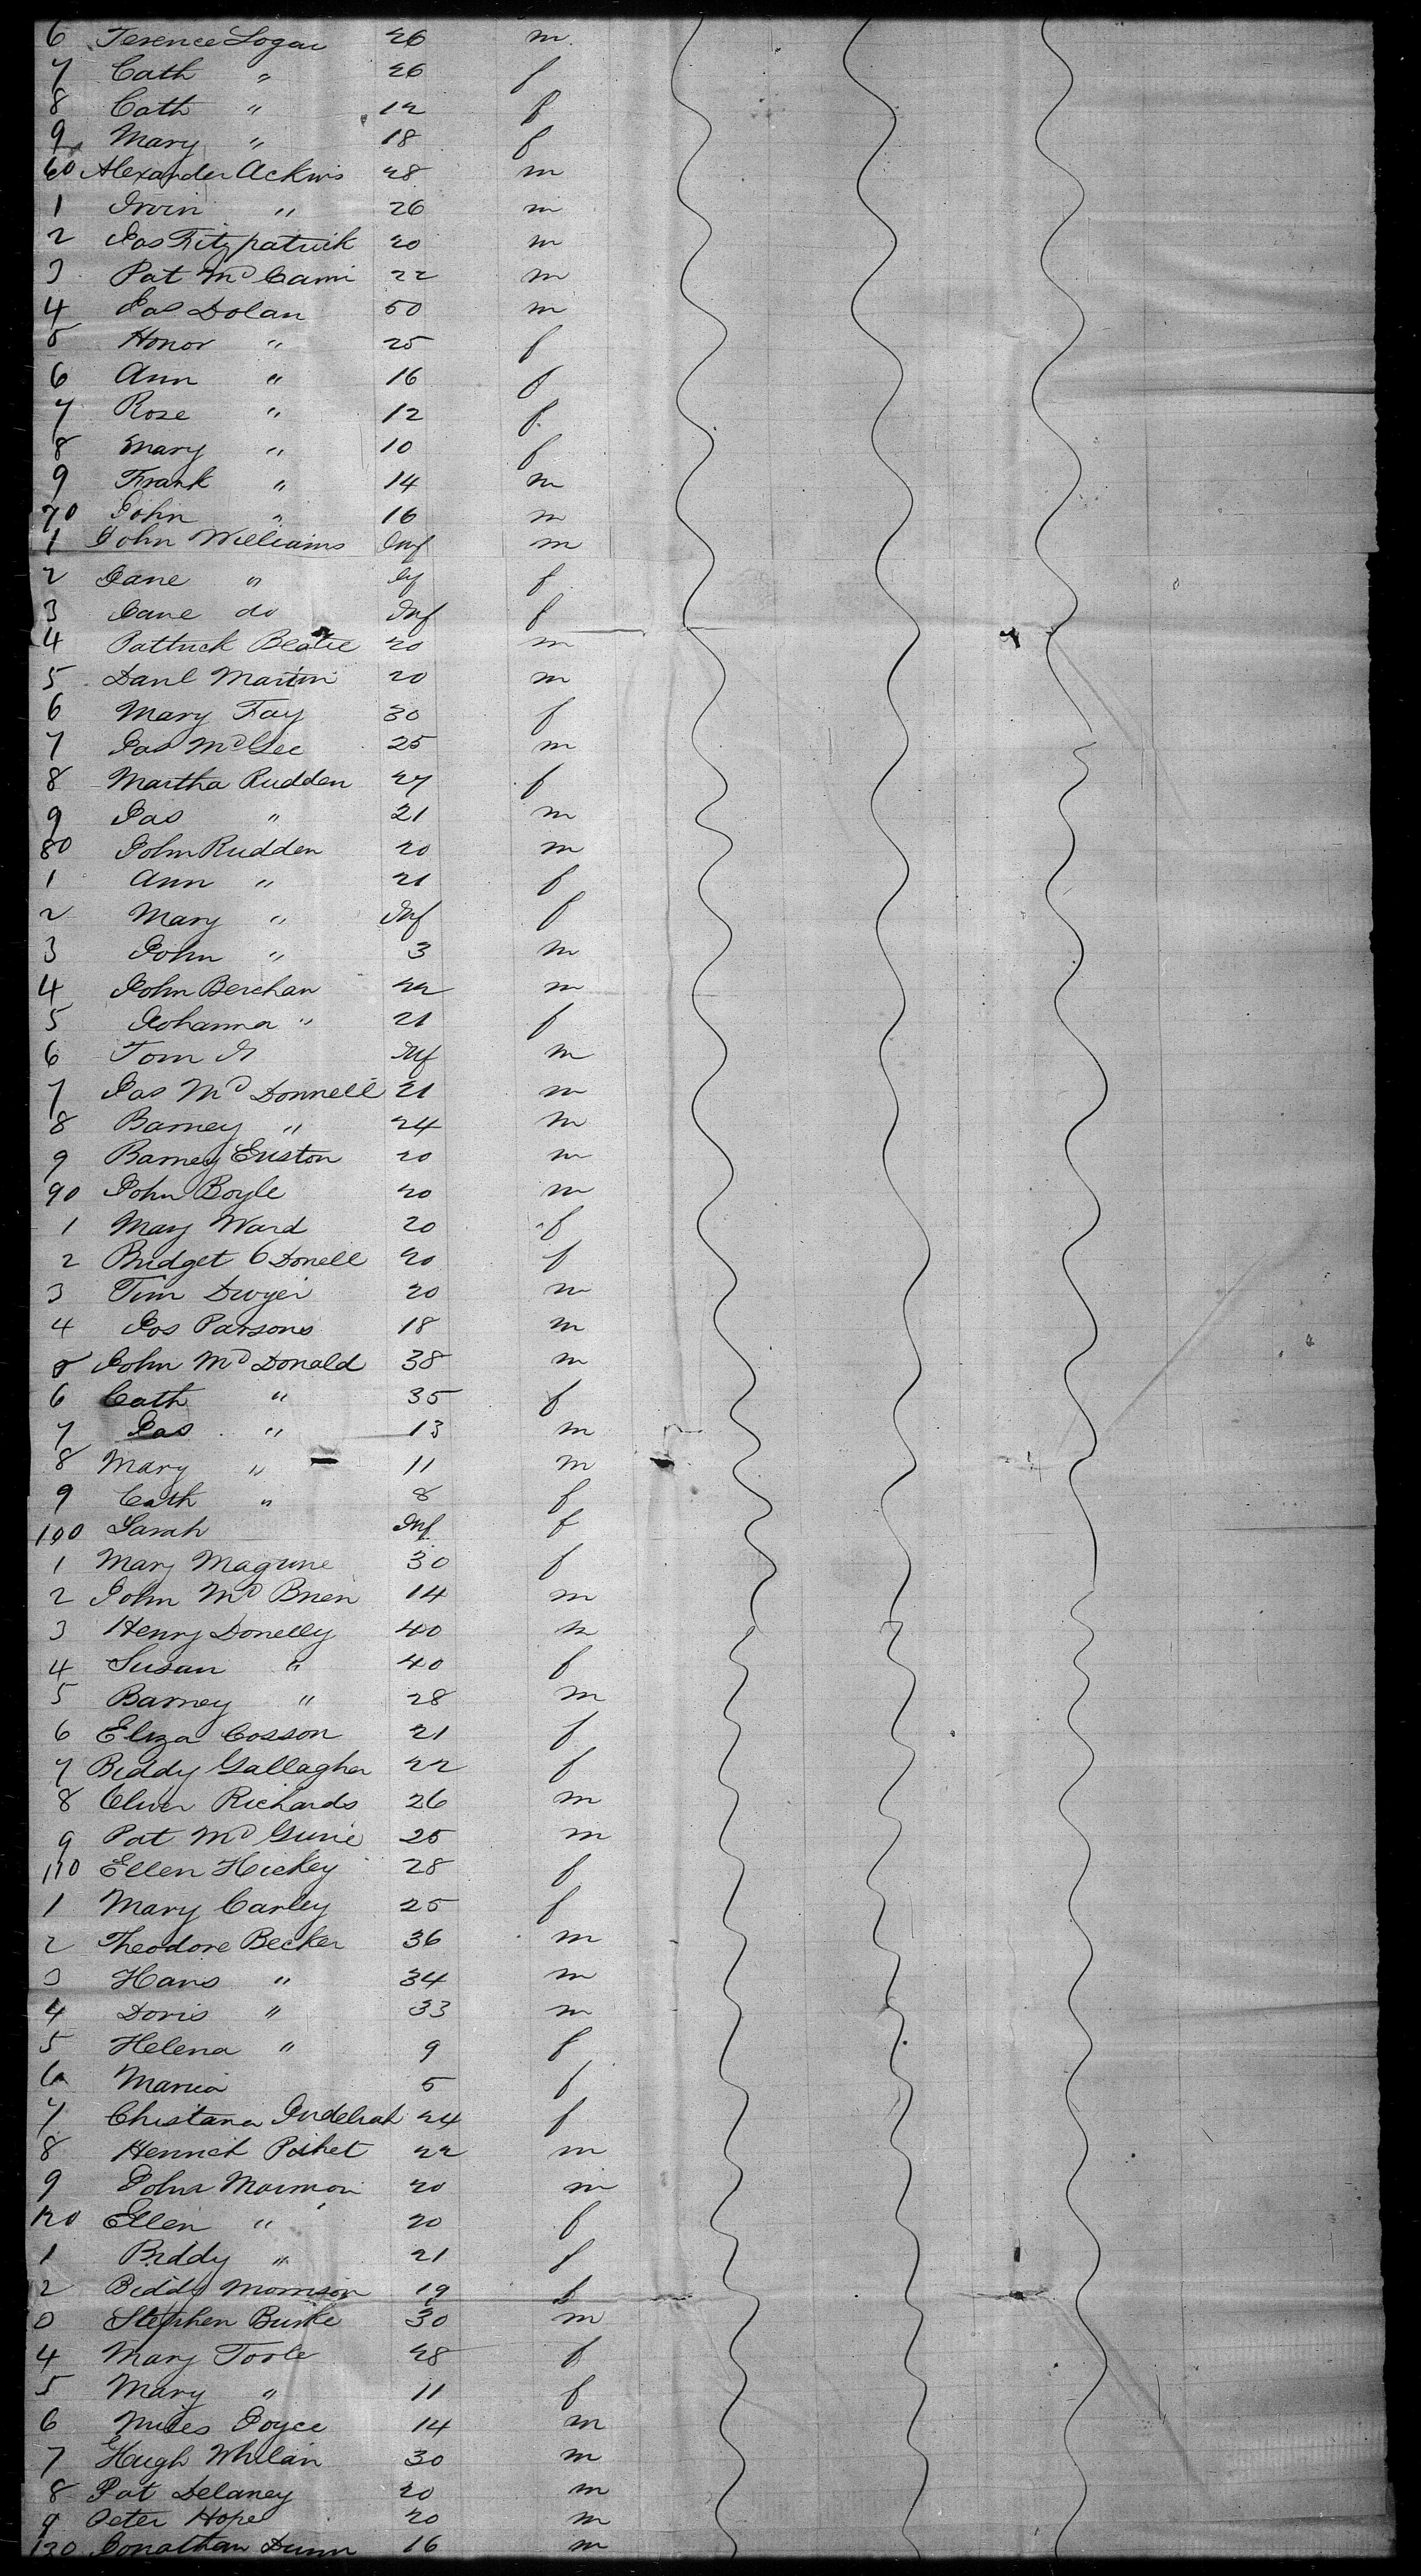 6 Terence Logan 26 m
7 Cath " 26 f
8 Cath " 12 f
9 Mary " 18 f
60 Alexander Ackins 28 m
1 Irvin " 26 m
2 Jas Fitzpatrick 20 m
3 Pat McCann 22 m
4 Jas Dolan 50 m
5 Honor " 25 f
6 Ann " 16 f
7 Rose " 12 f
8 Mary " 10 f
9 Frank " 14 m
70 John " 16 m
1 John Williams Inf m
2 Jane " f
3 Jane do Inf f
4 Pattrick Beatie 20 m
5 Danl Martin 20 m
6 Mary Fay 30 f
7 Jas McGee 25 m
8 Martha Rudden 27 f
9 Jas " 21 m
80 John Rudden 20 m
1 Ann " 21 f
2 Mary " Inf f
3 John " 3 m
4 John Berchan 22 m
5 Johanna " 21 f
6 Tom Inf m
7 Jas McDonnell 21 m
8 Barney " 24 m
9 Barney Euston 20 m
90 John Boyle 20 m
1 Mary Ward 20 f
2 Bridget O Donell 20 f
3 Tim Dwyer 20 m
4 Jos Parsons 18 m
5 John McDonald 38 m
6 Cath " 35 f
7 Jas " 13 m
8 Mary " 11 m
9 Cath " 8 f
100 Sarah Inf f
1 Mary Maguire 30 f
2 John McBrien 14 m
3 Henry Donelly 40 m
4 Susan " 40 f
5 Barney " 28 m
6 Eliza Cosson 21 f
7 Biddy Gallagher 22 f
8 Oliver Richards 26 m
9 Pat McGuire 25 m
110 Ellen Hickey 28 f
1 Mary Carley 25 f
2 Theodore Becker 36 m
3 Hans " 34 m
4 Doris " 33 m
5 Helena " 9 f
6 Maria 5 f
7 Christana 24 f
8 Henrich 22 m
9 John 20 m
120 Ellen " 20 f
1 Biddy " 21 f
2 Biddy Morrison 19 f
3 Stephen Burke 30 m
4 Mary Toole 28 f
5 Mary " 11 f
6 Miles Joyce 14 m
7 Hugh Whelan 30 m
8 Pat Delaney 20 m
9 Peter Hope 20 m
130 Jonathan Dunn 16 m